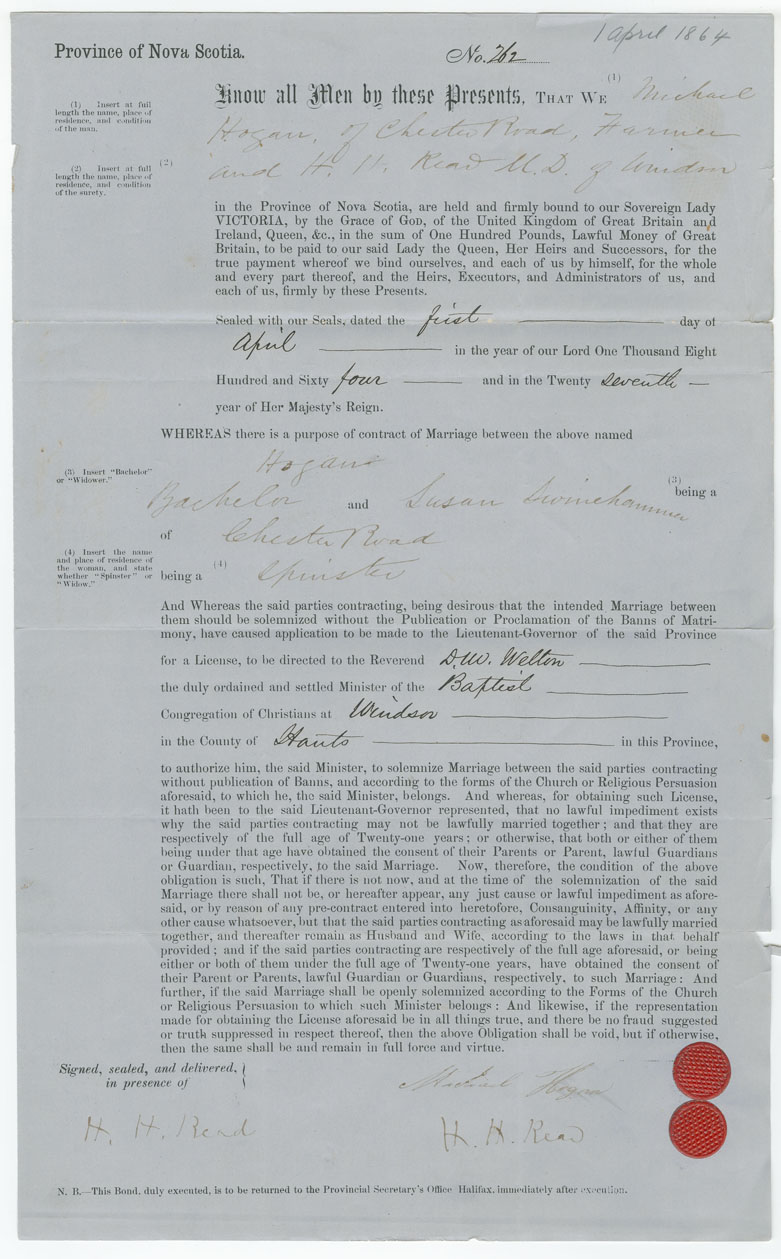 1 April 1864
Province of Nova Scotia.
No. 262
Know all Men by these Presents, THAT WE (1) Michael
(1) Insert at full
length the name, place of
residence, and condition
of the man.
Hogan, of Chester Road, Farmer
(2) Insert at full
length the name, place of
residence, and condition
of the surety.
(2) and H. H. Read M.D. of Windsor
in the Province of Nova Scotia, are held and firmly bound to our Sovereign Lady
VICTORIA, by the Grace of GOD, of the United Kingdom of Great Britain and
Ireland, Queen, &c., in the sum of One Hundred Pounds, Lawful Money of Great
Britain, to be paid to our said Lady the Queen, Her Heirs and Successors, for the
true payment whereof we bind ourselves, and each of us by himself, for the whole
and every part thereof, and the Heirs, Executors, and Administrators of us, and
each of us, firmly by these Presents.
Sealed with our Seals, dated the first day of
April in the year of our Lord One Thousand Eight
Hundred and Sixty four and in the Twenty seventh
year of Her Majesty's Reign.
WHEREAS there is a purpose of contract of Marriage between the above named
Hogan
(3) Insert "Bachelor"
or "Widower."
(3) being a
Bachelor and Susan Swinehammer
of Chester Road
(4) Insert the name
and place of residence of
the woman, and state
whether "Spinster" or
"Widow."
being a (4) Spinster
And Whereas the said parties contracting, being desirous that the intended Marriage between
them should be solemnized without the Publication or Proclamation of the Banns of Matri-
mony, have caused application to be made to the Lieutenant-Governor of the said Province
for a License, to be directed to the Reverend D.W. Welton
the duly ordained and settled Minister of the Baptist
Congregation of Christians at Windsor
in the County of Hants in this Province,
to authorize him, the said Minister, to solemnize Marriage between the said parties contracting
without publication of Banns, and according to the forms of the Church or Religious Persuasion
aforesaid, to which he, the said Minister, belongs. And whereas, for obtaining such License,
it hath been to the said Lieutenant-Governor represented, that no lawful impediment exists
why the said parties contracting may not be lawfully married together; and that they are
respectively of the full age of Twenty-one years; or otherwise, that both or either of them
being under that age have obtained the consent of their Parents or Parent, lawful Guardians
or Guardian, respectively, to the said Marriage. Now, therefore, the condition of the above
obligation is such, That if there is not now, and at the time of the solemnization of the said
Marriage there shall not be, or hereafter appear, any just cause or lawful impediment as afore-
said, or by reason of any pre-contract entered into heretofore, Consanguinity, Affinity, or any
other cause whatsoever, but that the said parties contracting as aforesaid may be lawfully married
together, and thereafter remain as Husband and Wife, according to the laws in that behalf
provided; and if the said parties contracting are respectively of the full age aforesaid, or being
either or both of them under the full age of Twenty-one years, have obtained the consent of
their Parent or Parents, lawful Guardian or Guardians, respectively, to such Marriage: And
further, if the said Marriage shall be openly solemnized according to the Forms of the Church
or Religious Persuasion to which such Minister belongs: And likewise, if the representation
made for obtaining the License aforesaid be in all things true, and there be no fraud suggested
or truth suppressed in respect thereof, then the above Obligation shall be void, but if otherwise,
then the same shall be and remain in full force and virtue.
Signed, sealed, and delivered,
in presence of
Michael Hogan
H. H. Read
H. H. Read
N. B.—This Bond, duly executed, is to be returned to the Provincial Secretary's Office Halifax, immediately after execution.